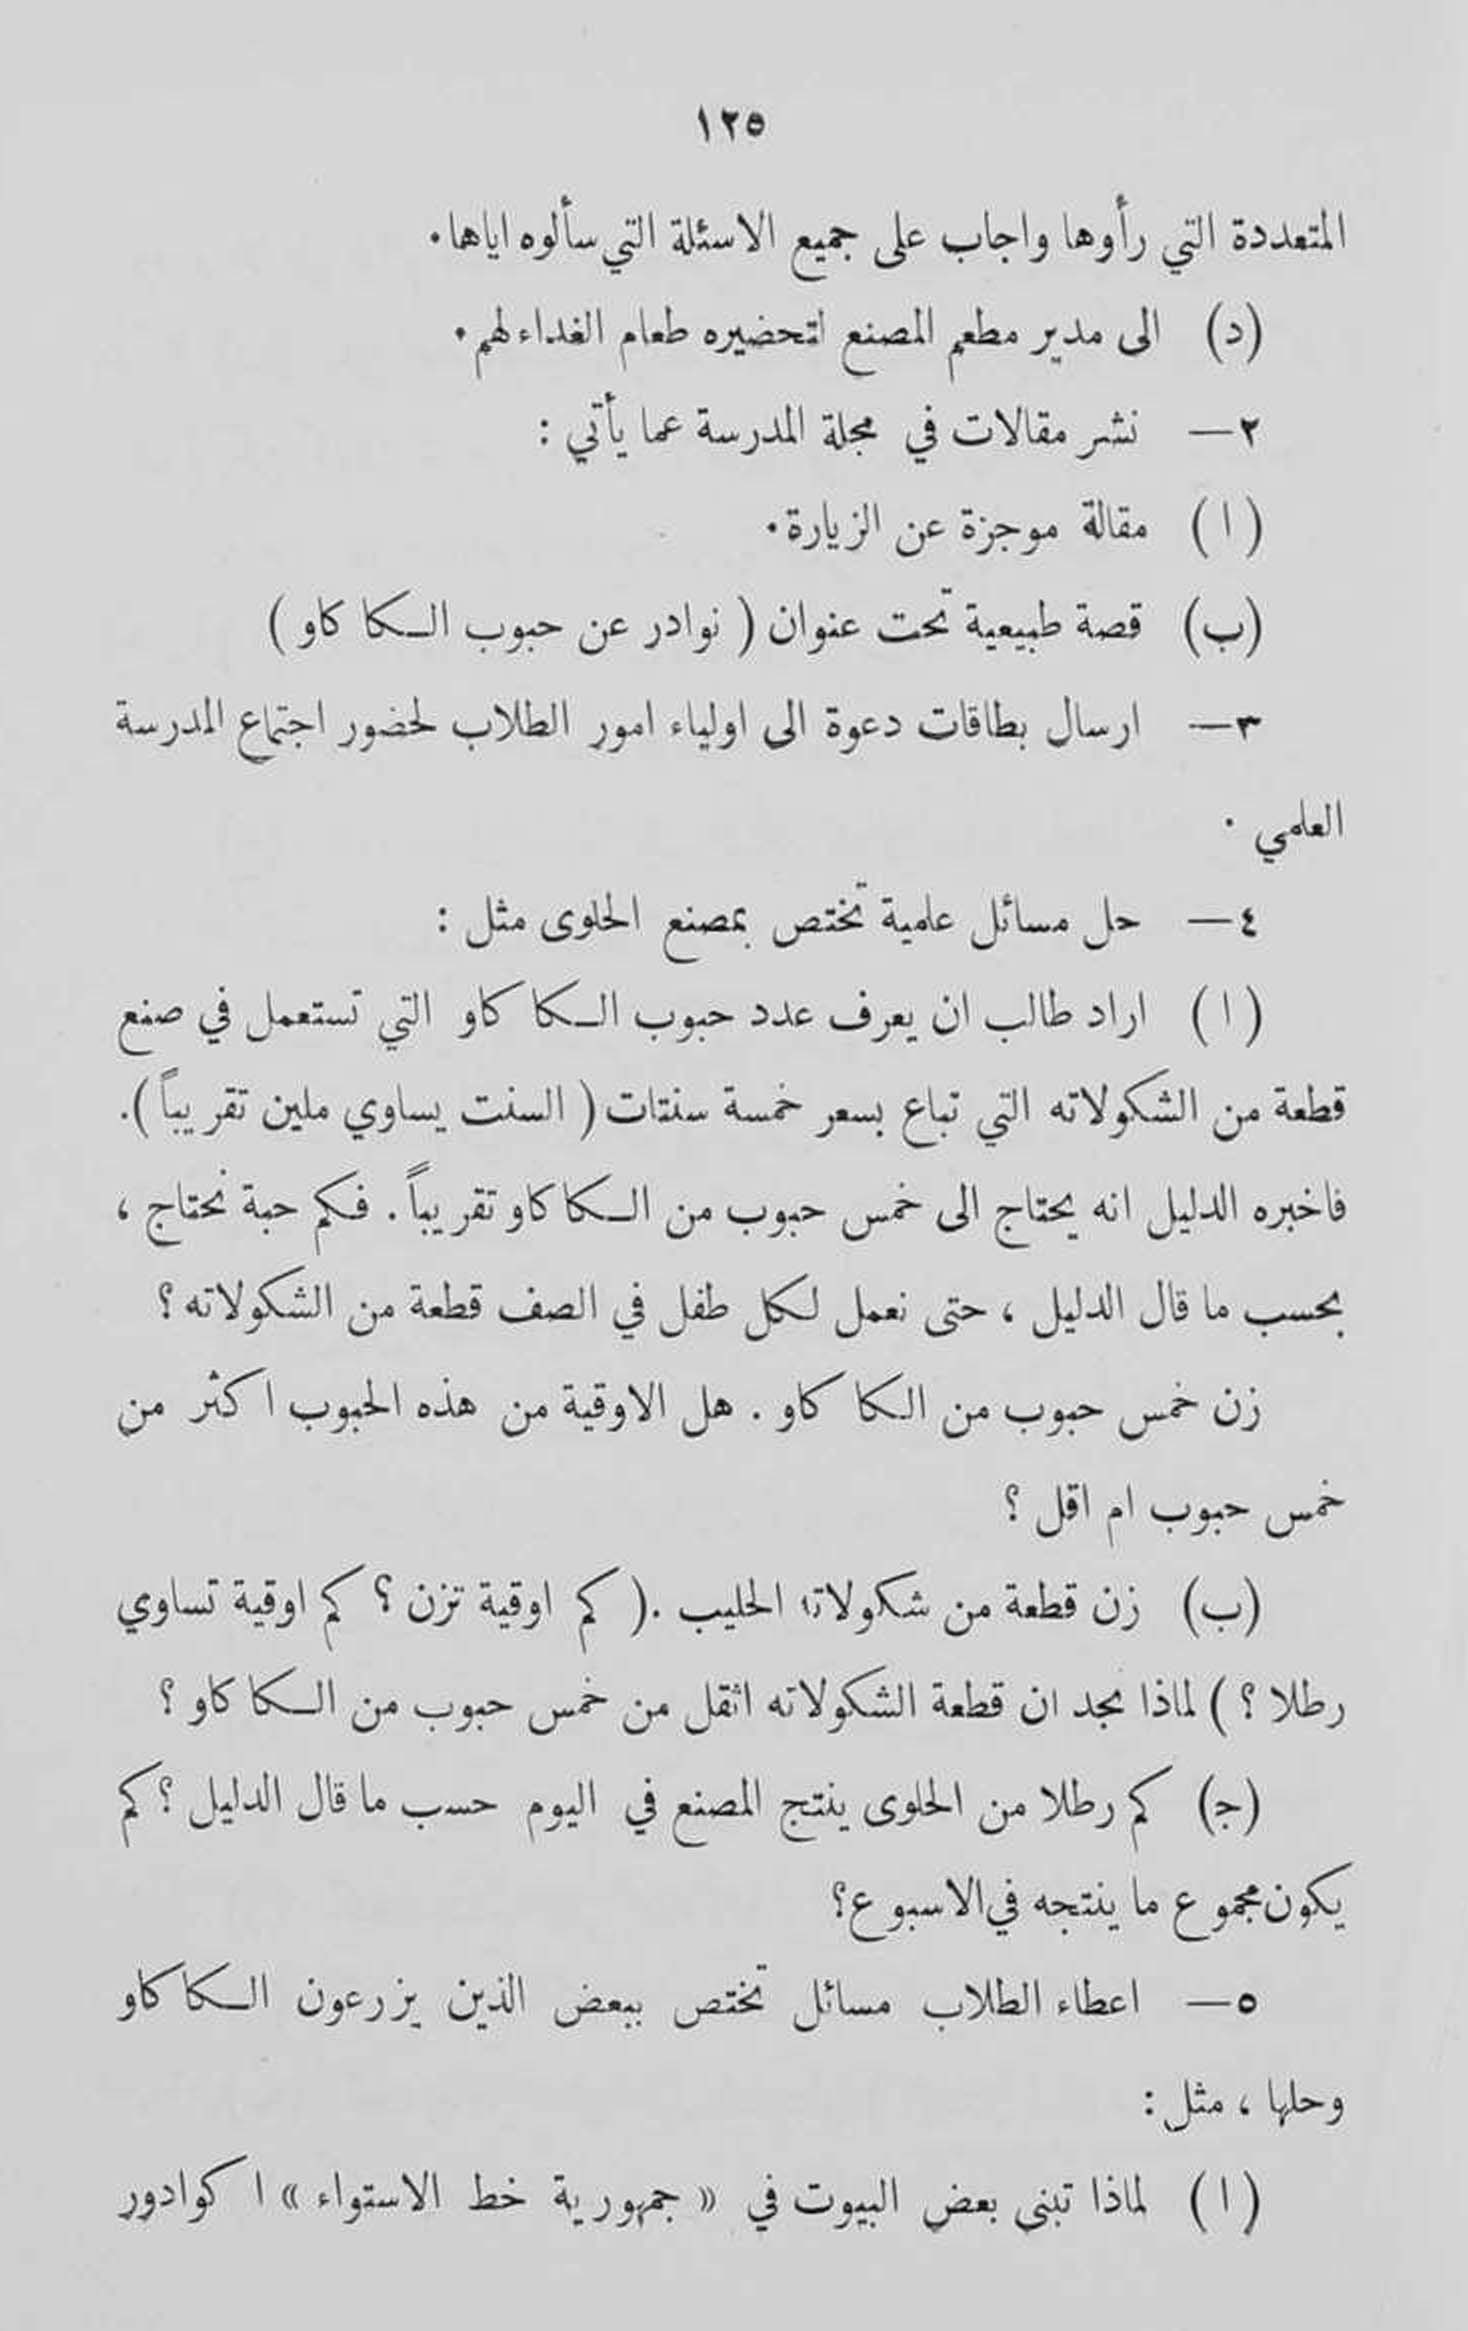 ١٢٥
المتعددة التي رأوها واجاب على جميع الاسئلة التي سألوه اياها.
(د) الى مدير مطعم المصنع لتحضيره طعام الغداء لهم.
٢— نشر مقالات في مجلة المدرسة عما يأتي :
(ا) مقالة موجزة عن الزيارة.
(ب) قصة طبيعية تحت عنوان ( نوادر عن حبوب الكاكاو )
٣— ارسال بطاقات دعوة الى اولياء امور الطلاب لحضور اجتماع المدرسة
العلمي .
٤— حل مسائل علمية تختص بمصنع الحلوى مثل :
(ا) اراد طالب ان يعرف عدد حبوب الكاكاو التي تستعمل في صنع
قطعة من الشكولاته التي تباع بسعر خمسة سنتات ( السنت يساوي ملين تقريباً ).
فاخبره الدليل انه يحتاج الى خمس حبوب من الكاكاو تقريباً . فكم حبة نحتاج ،
بحسب ما قال الدليل ، حتى نعمل لكل طفل في الصف قطعة من الشكولاته ؟
زن خمس حبوب من الكاكاو . هل الاوقية من هذه الحبوب اكثر من
خمس حبوب ام اقل ؟
(ب) زن قطعة من شكولاته الحليب .( كم اوقية تزن ؟ كم اوقية تساوي
رطلا ؟ ) لماذا نجد ان قطعة الشكولاته اثقل من خمس حبوب من الكاكاو ؟
(ج) كم رطلا من الحلوى ينتج المصنع في اليوم حسب ما قال الدليل ؟ كم
يكون مجموع ما ينتجه في الاسبوع؟
٥— اعطاء الطلاب مسائل تختص ببعض الذين يزرعون الكاكاو
وحلها ، مثل :
(ا) لماذا تبنى بعض البيوت في « جمهورية خط الاستواء » اكوادور